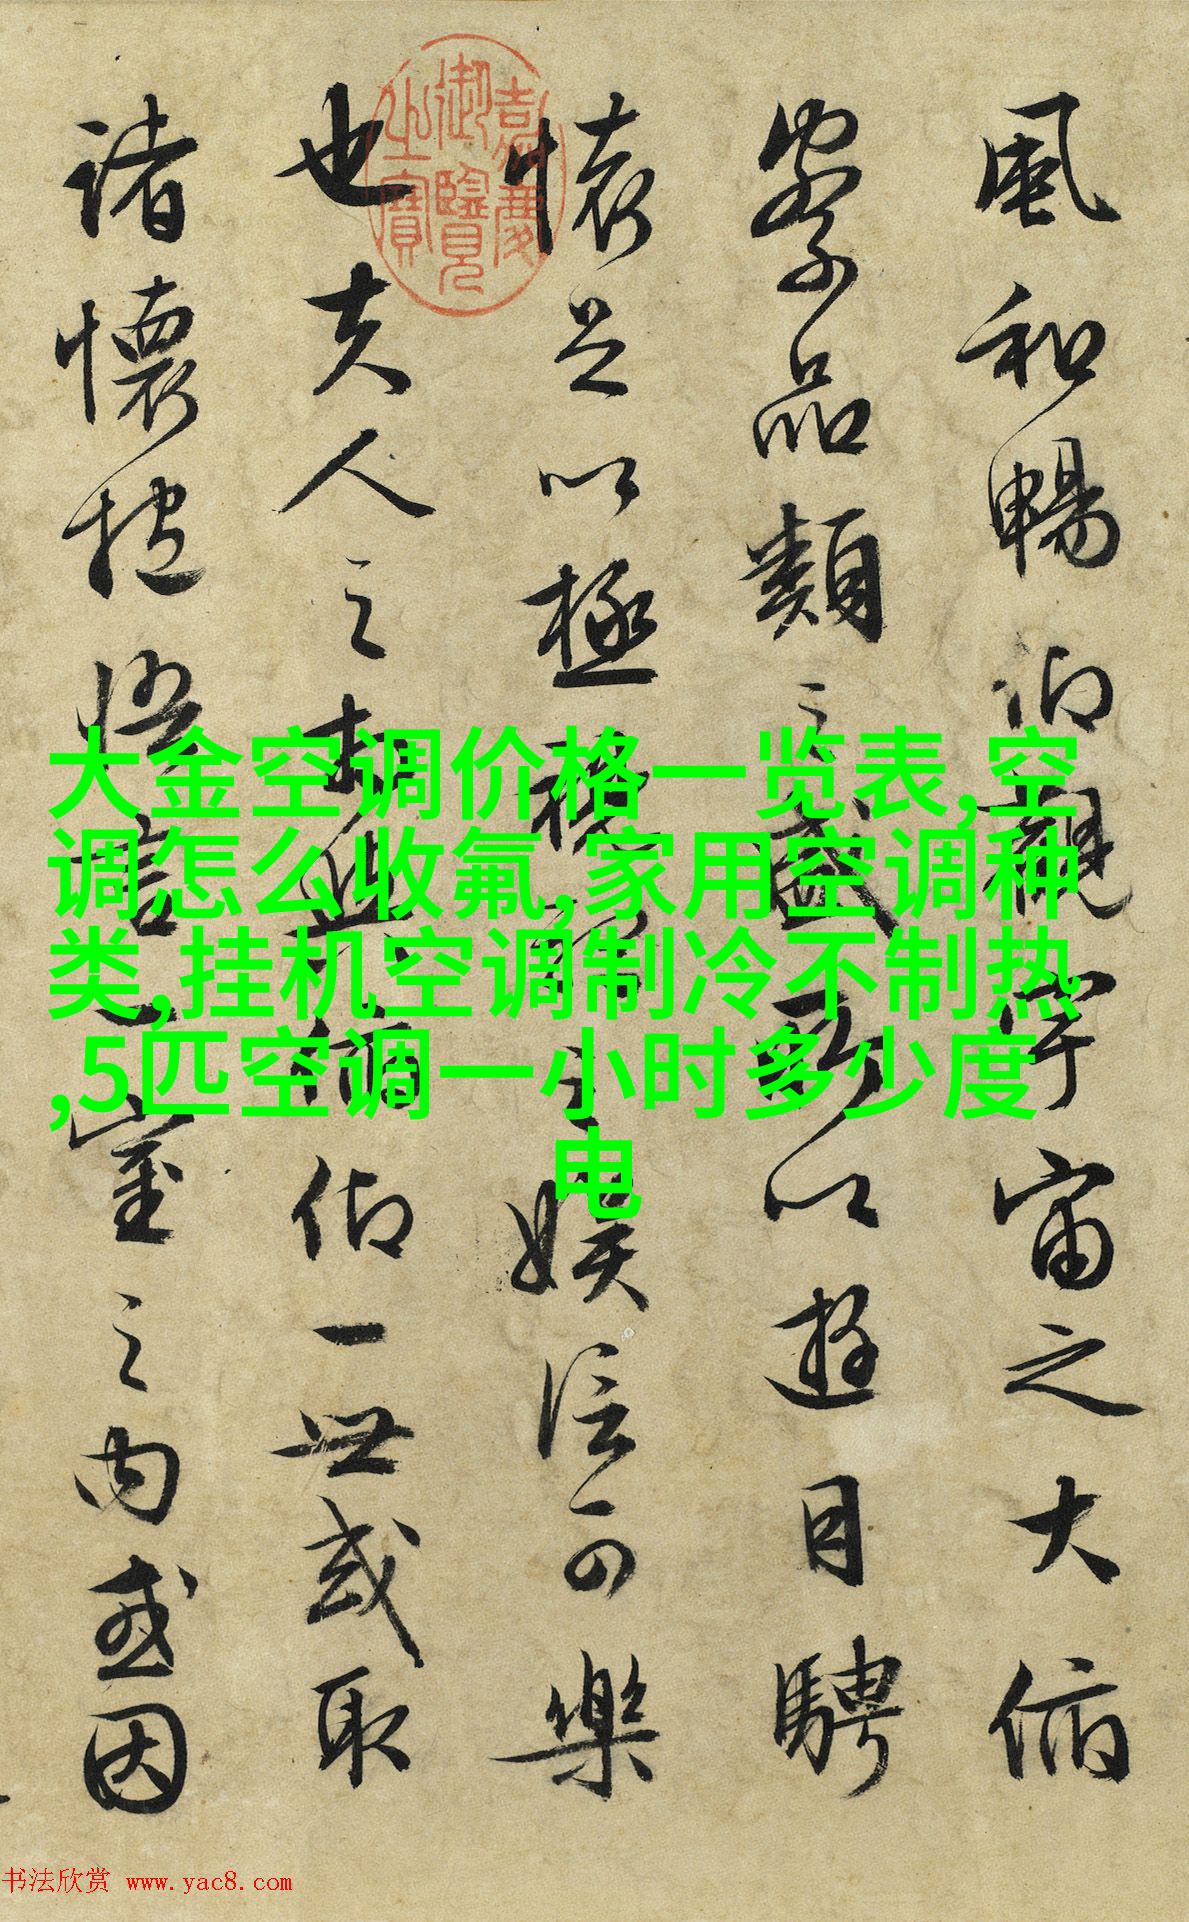 風和暢仰觀宇宙之大俯
察品類之盛所以遊目騁
懷足以極視聽之娛信可樂
也夫人之相與俯仰一世或取
諸懷抱悟言一室之內或因
嘉慶
御覽
之寶
大金空调价格一览表,空
调怎么收氟,家用空调种
类,挂机空调制冷不制热
,5匹空调一小时多少度
电
书法欣赏 www.yac8.com